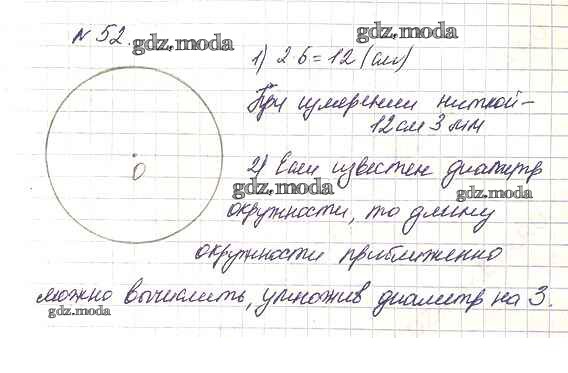 № 52.
gdz.moda
gdz.moda
1) 2 6 = 12 (см)
При измерении ниткой –
12 см 3 мм
O
2) Если известен диаметр
gdz.moda
gdz.moda
окружности, то длину
окружности приближенно
можно вычислить, умножив диаметр на 3.
gdz.moda